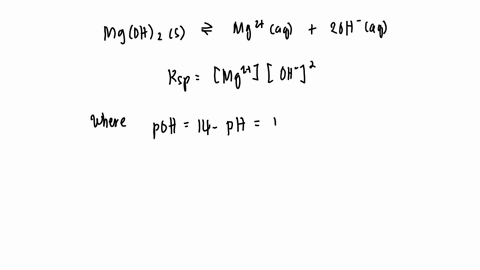 Mg(OH)₂ (s) ⇌ Mg²⁺ (aq) + 2OH⁻ (aq)
Ksp = [Mg²⁺] [OH⁻]²
Where pOH = 14 - pH = 1